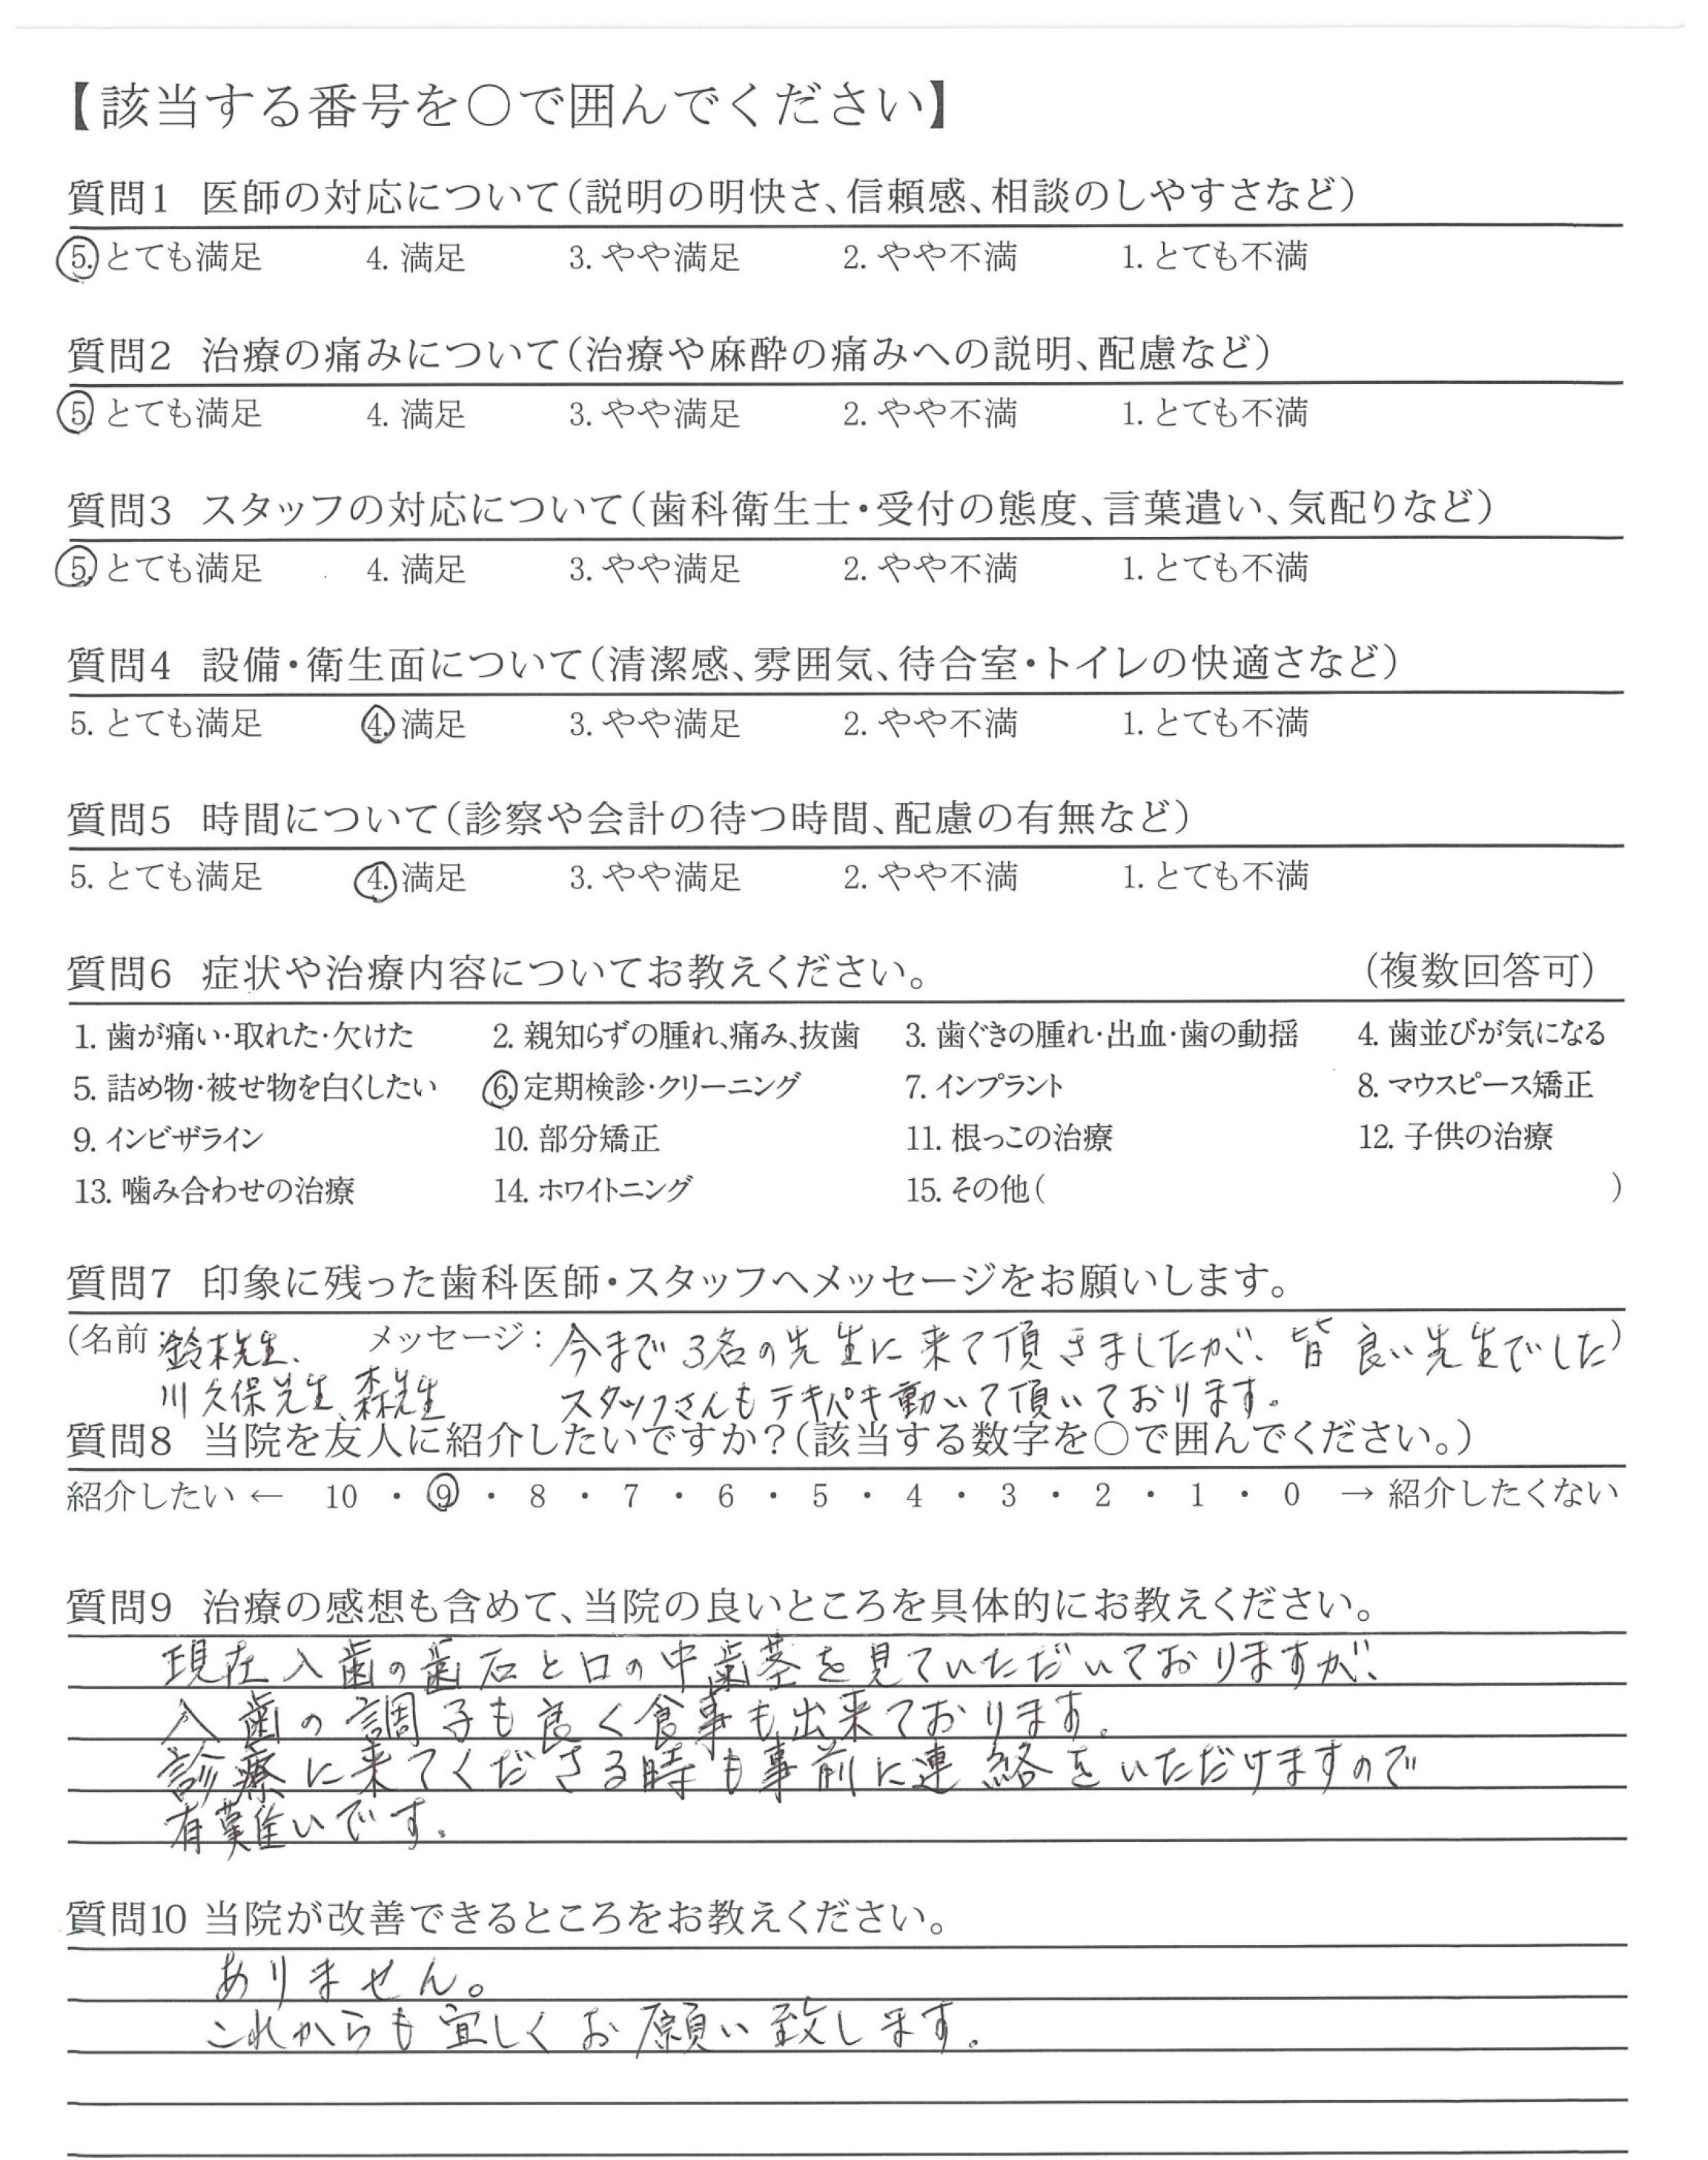 【該当する番号を〇で囲んでください】
質問1 医師の対応について(説明の明快さ、信頼感、相談のしやすさなど)
5. とても満足 4. 満足 3. やや満足 2. やや不満 1. とても不満
質問2 治療の痛みについて(治療や麻酔の痛みへの説明、配慮など)
5. とても満足 4. 満足 3. やや満足 2. やや不満 1. とても不満
質問3 スタッフの対応について(歯科衛生士・受付の態度、言葉遣い、気配りなど)
5. とても満足 4. 満足 3. やや満足 2. やや不満 1. とても不満
質問4 設備・衛生面について(清潔感、雰囲気、待合室・トイレの快適さなど)
5. とても満足 4. 満足 3. やや満足 2. やや不満 1. とても不満
質問5 時間について(診察や会計の待つ時間、配慮の有無など)
5. とても満足 4. 満足 3. やや満足 2. やや不満 1. とても不満
質問6 症状や治療内容についてお教えください。 (複数回答可)
1. 歯が痛い・取れた・欠けた 2. 親知らずの腫れ、痛み、抜歯 3. 歯ぐきの腫れ・出血・歯の動揺 4. 歯並びが気になる
5. 詰め物・被せ物を白くしたい 6. 定期検診・クリーニング 7. インプラント 8. マウスピース矯正
9. インビザライン 10. 部分矯正 11. 根っこの治療 12. 子供の治療
13. 噛み合わせの治療 14. ホワイトニング 15. その他( )
質問7 印象に残った歯科医師・スタッフへメッセージをお願いします。
(名前:鈴木先生、 メッセージ:今まで3名の先生に来て頂きましたが、皆良い先生でした)
川久保先生、森先生 スタッフさんもテキパキ動いて頂いております。
質問8 当院を友人に紹介したいですか?(該当する数字を〇で囲んでください。)
紹介したい ← 10 ・ 9 ・ 8 ・ 7 ・ 6 ・ 5 ・ 4 ・ 3 ・ 2 ・ 1 ・ 0 → 紹介したくない
質問9 治療の感想も含めて、当院の良いところを具体的にお教えください。
現在入歯の歯石と口の中歯茎を見ていただいておりますが、
入歯の調子も良く食事も出来ております。
診療に来てくださる時も事前に連絡をいただけますので
有難いです。
質問10 当院が改善できるところをお教えください。
ありません。
これからも宜しくお願い致します。